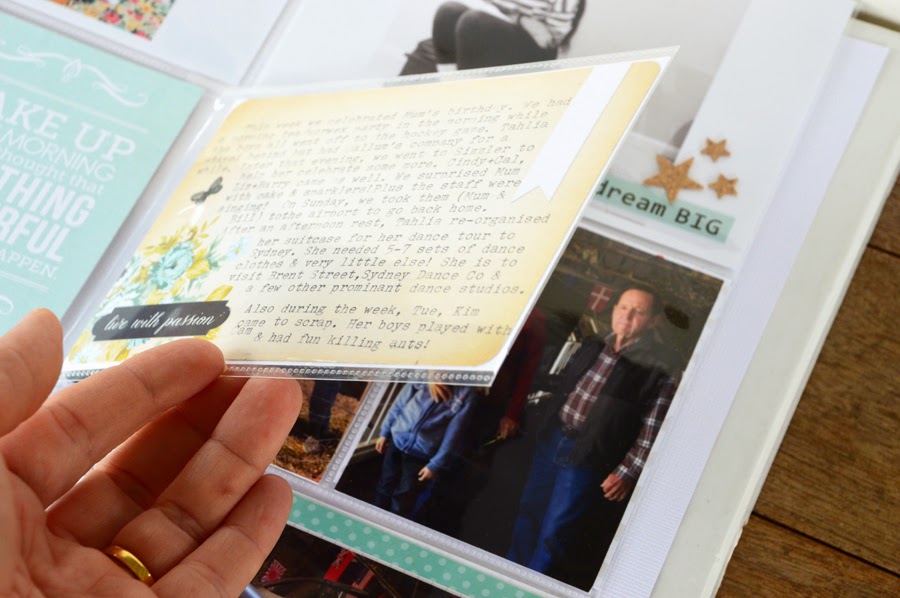 AKE UP
MORNING
hought that
THING
RFUL
APPEN.
This week we celebrated Mum's birthday. We had
party in the morning while
the boys all went off to the hockey game. Tahlia
behind and had Callum's company for a
while. Later that evening, we went to Sizzler to
help her celebrate some more. Cindy+Cal,
Liz+Barry came as well. We surprised Mum
with cake & sparklers!Plus the staff were
On Sunday, we took them (Mum &
Bill) tothe airport to go back home.
After an afternoon rest, Tahlia re-organised
her suitcase for her dance tour to
Sydney. She needed 5-7 sets of dance
clothes & very little else! She is to
visit Brent Street,Sydney Dance Co &
a few other prominant dance studios.
Also during the week, Tue, Kim
came to scrap. Her boys played with
& had fun killing ants!
live with passion
dream BIG